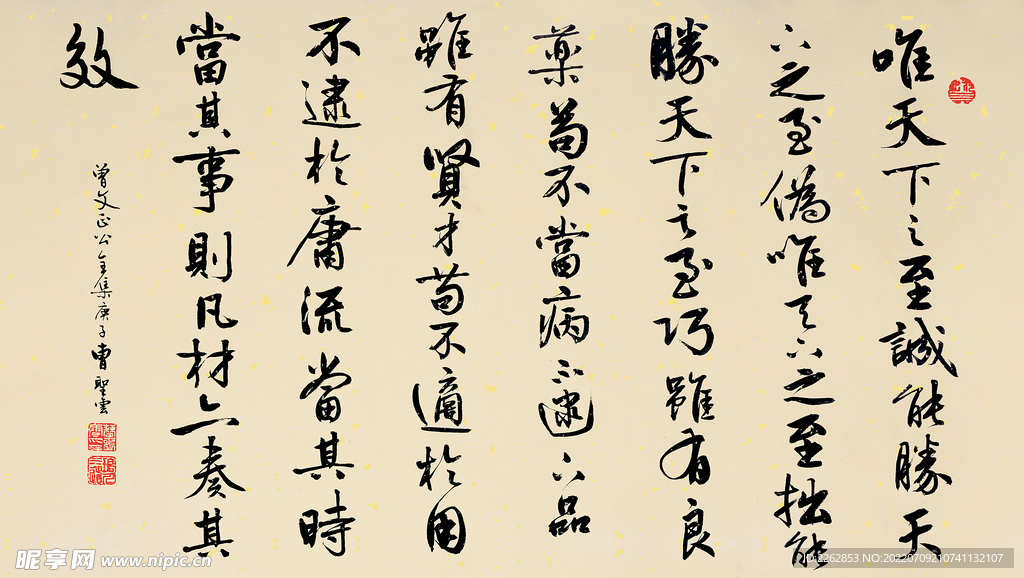 唯天下之至誠能勝天
下之至偽唯天下之至拙能
勝天下之至巧雖有良
藥苟不當病不逮下品
雖有賢才苟不適於用
不逮於庸流當其時
當其事則凡材亦奏其
效
曾文正公全集庚子曹聖雲
昵享网 www.nipic.cn
ID:2262853 NO:20220709210741132107